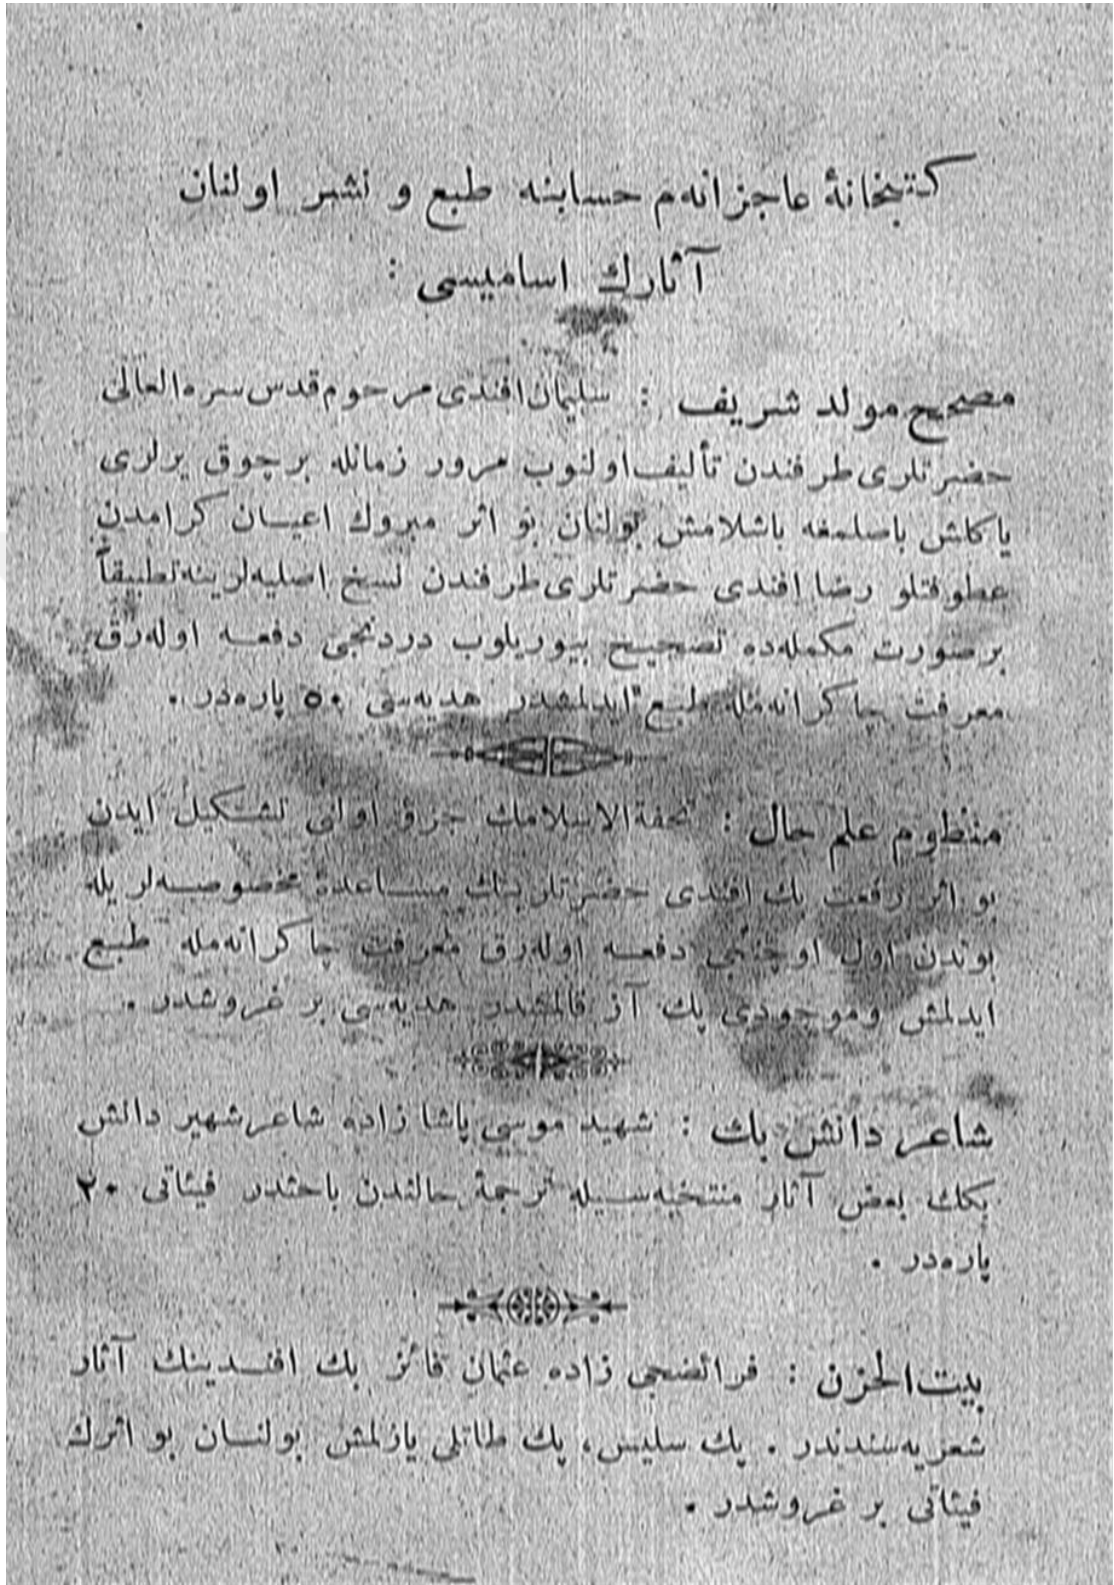 كتبخانهٔ عاجزانه‌م حسابنه طبع و نشر اولنان
آثارك اساميسى :
مصحح مولد شريف : سليمان افندى مرحوم قدس سره العالى
حضرتلرى طرفندن تأليف اولنوب مرور زمانله برچوق يرلرى
ياكلش باصلمغه باشلامش بولنان بو اثر مبروك اعيان كرامدن
عطوفتلو رضا افندى حضرتلرى طرفندن نسخ اصليه‌لرينه تطبيقاً
برصورت مكمله‌ده تصحيح بيوريلوب دردنجى دفعه اوله‌رق
معرفت چاكرانه‌مله طبع ايدلمشدر هديه‌سى ٥٠ پاره‌در .
منظوم علم حال : تحفة الاسلامك جزؤ اولنى تشكيل ايدن
بو اثر رفعت بك افندى حضرتلرينك مساعدهٔ مخصوصه‌لريله
بوندن اول اوچنجى دفعه اوله‌رق معرفت چاكرانه‌مله طبع
ايدلمش وموجودى پك آز قالمشدر هديه‌سى بر غروشدر .
شاعر دانش بك : شهيد موسى پاشا زاده شاعر شهير دانش
بكك بعض آثار منتخبه‌سيله ترجمهٔ حالندن باحثدر فيئاتى ٢٠
پاره‌در .
بيت الحزن : فرائضجى زاده عثمان فائز بك افندينك آثار
شعريه‌سندندر . پك سليس، پك طاتلى يازلمش بولنان بو اثرك
فيئاتى بر غروشدر .